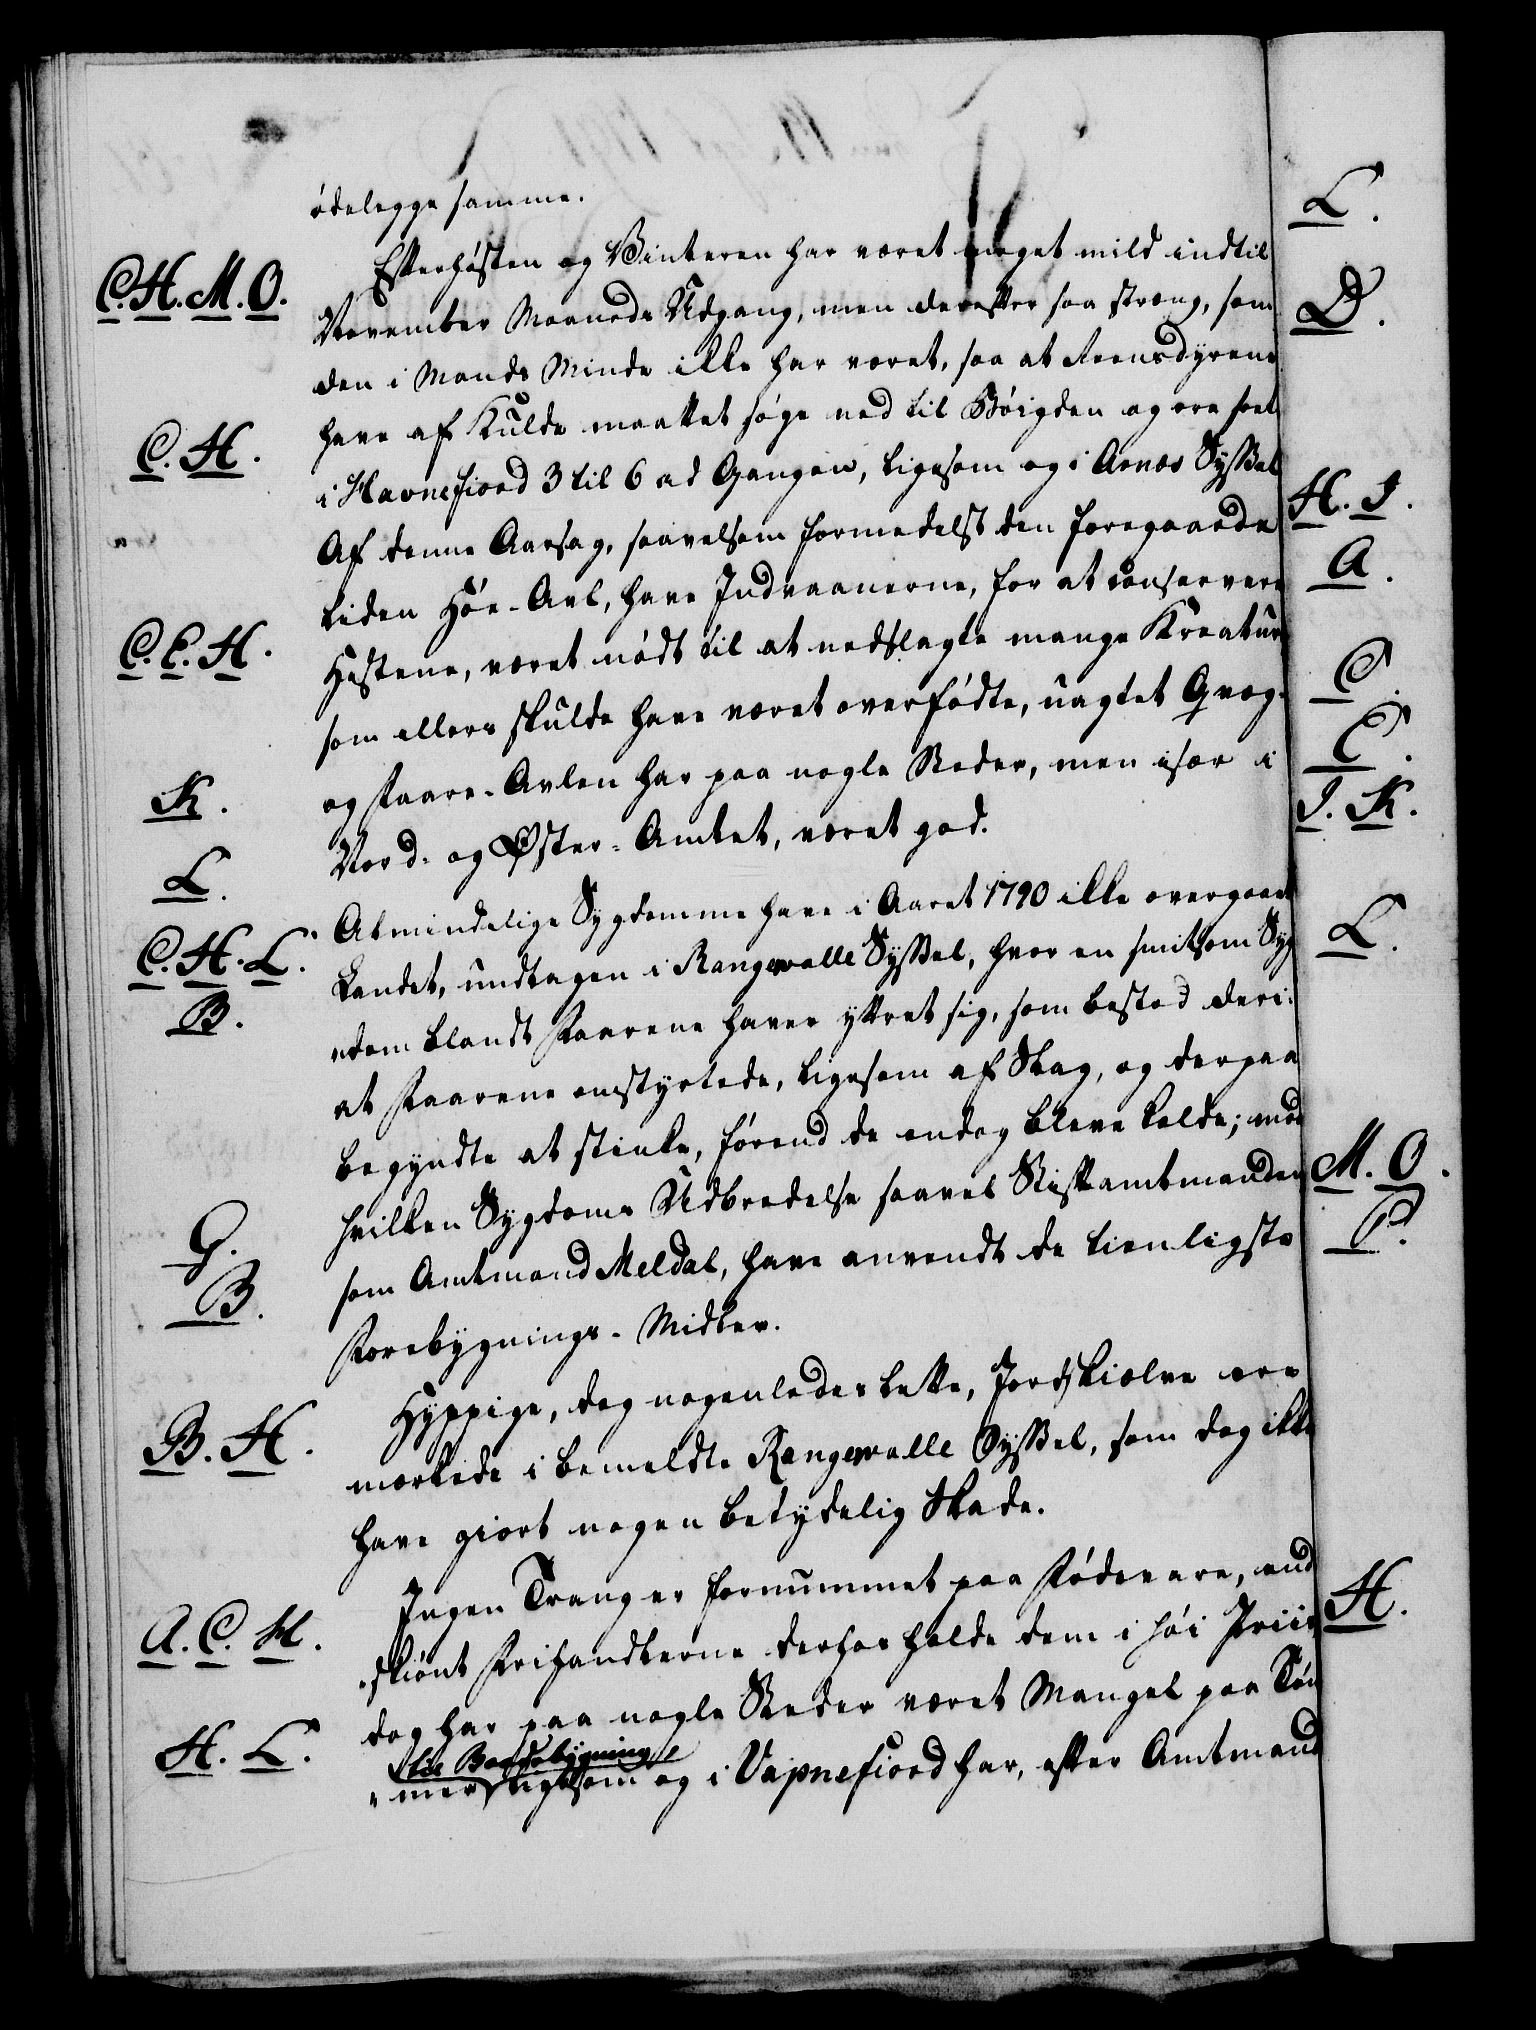 ödelegge samme.
C. H. M. O.
Efterhösten og Vinteren har været meget mild indtil
November Maaneds Udgang, men derefter saa stræng, som
den i Mands Minde ikke har været, saa at Reensdyrene
have af Kulde maattet söge ned til Böigden og ere seet
C. H.
i Havnefiord 3 til 6 ad Gangen, ligesom og i Arnæs Syssel
Af denne Aarsag, saavelsom formedelst den foregaaede
liden Höe-Avl, have Indvaanerne, for at conservere
C. E. H.
Hestene, været nödt til at nedslagte mange Kreature
som ellers skulde have været overfödte, uagtet Qvæg-
K.
og Faare-Avlen har paa nogle Steder, men især i
Nord- og Øster-Amtet, været god.
L.
Almindelige Sygdomme have i Aaret 1790 ikke overgaaet
C. H. L.
Landet, undtagen i Rangervalle Syssel, hvor en smitsom Syg
B.
"dom blandt Faarene haver yttret sig, som bestod deri:
at Faarene omstyrtede, ligesom af Slag, og derpaa
begyndte at stinke, förend de endog bleve kolde; mod
hvilken Sygdoms Udbredelse saavel Stiftamtmanden
G.
som Amtmand Meldal, have anvendt de tienligste
B.
Forebygnings-Midler.
Hyppige, dog nogenledes lette, Jordskiælve ere
B. H.
mærkede i bemeldte Rangervalle Syssel, som dog ikke
have giort nogen betydelig Skade.
Ingen Trang er fornummet paa Födevare, end
A. C. H.
"skiönt Frihandlerne derhos holde dem i höi Priis
dog har paa nogle Steder været Mangel paa Töm
til Baadebygning
H. L.
"mer ligesom og i Vapnefiord har, efter Amtmand
L.
D.
H. I.
A.
C.
C.
I. K.
L.
M. O.
P.
H.